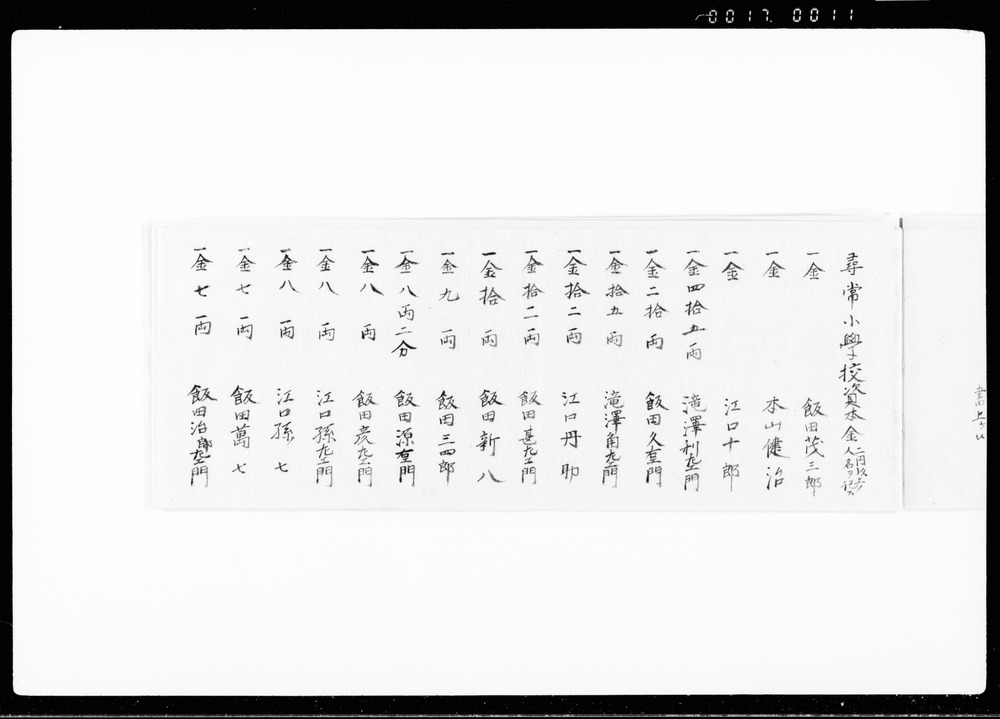 0017. 0011
尋常小學校資本金 二円以上ノ人名ヲ記ス
一金 飯田茂三郎
一金 本山健治
一金 江口十郎
一金四拾五両 滝澤利左エ門
一金二拾両 飯田久左エ門
一金拾五両 滝澤角左エ門
一金拾二両 江口丹助
一金拾二両 飯田甚左エ門
一金拾両 飯田新八
一金九両 飯田三四郎
一金八両二分 飯田源左エ門
一金八両 飯田炭左エ門
一金八両 江口孫左エ門
一金八両 江口孫七
一金七両 飯田萬七
一金七両 飯田治郎左エ門